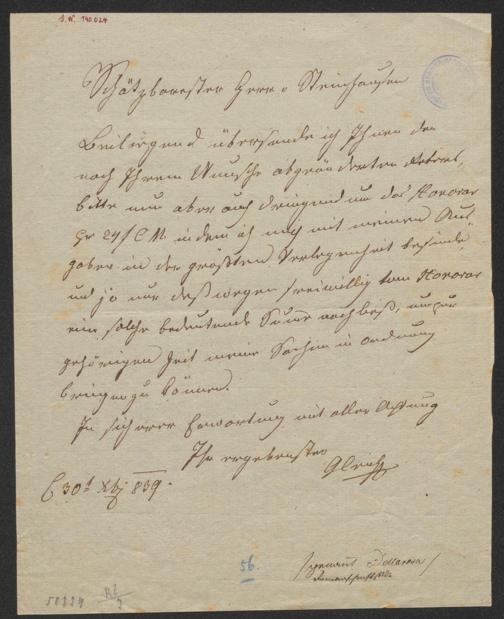 I.N. 190.024
Schätzbarester Herr v Steinhauser
Beiliegend übersende ich Ihnen den
nach Ihrem Wunsche abgeänderten
bitte nun aber auch dringend um das Honorar
pr 24 f C M. indem ich mich mit meinen Aus
gaben in der größten Verlegenheit befinde
und ja nur deßwegen freiwillig vom Honorar
eine solche bedeutende Summe nachließ, um zur
gehörigen Zeit meine Sachen in Ordnung
bringen zu können.
In sicherer Erwartung mit aller Achtung
Ihr ergebenster
Gleich
30t Xbr 839.
56.